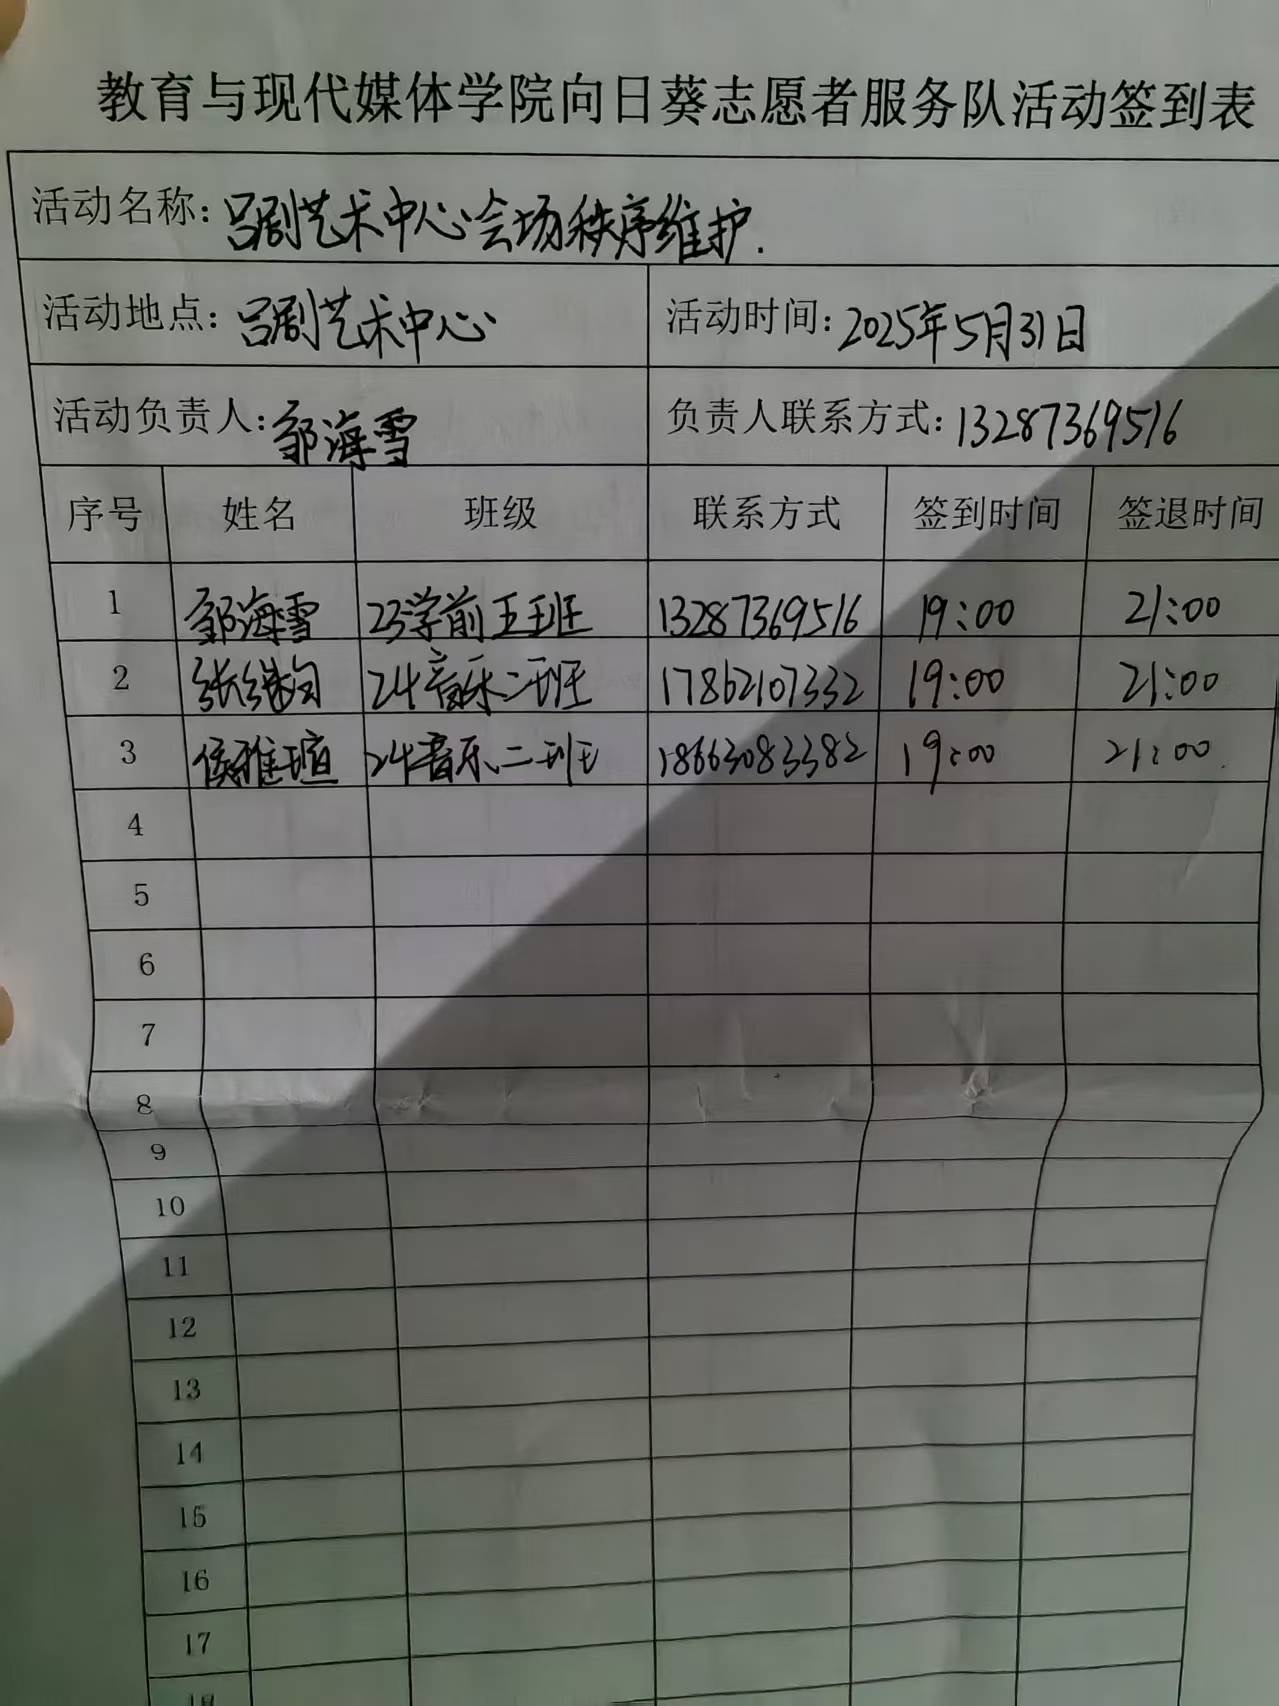 教育与现代媒体学院向日葵志愿者服务队活动签到表
活动名称：吕剧艺术中心会场秩序维护.
活动地点：吕剧艺术中心 活动时间：2025年5月31日
活动负责人：邹海雪 负责人联系方式：13287369516
序号 姓名 班级 联系方式 签到时间 签退时间
1 邹海雪 23学前五班 13287369516 19:00 21:00
2 张继匀 24音乐二班 17862107332 19:00 21:00
3 侯雅瑄 24音乐二班 18663083382 19:00 21:00
4
5
6
7
8
9
10
11
12
13
14
15
16
17
18